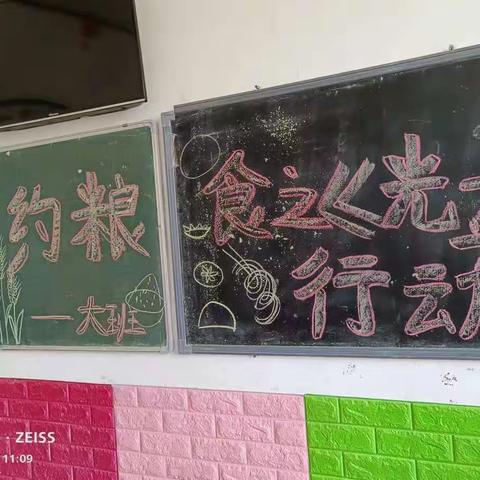 约粮
—大班
食巡光
行动
ZEISS
11:09